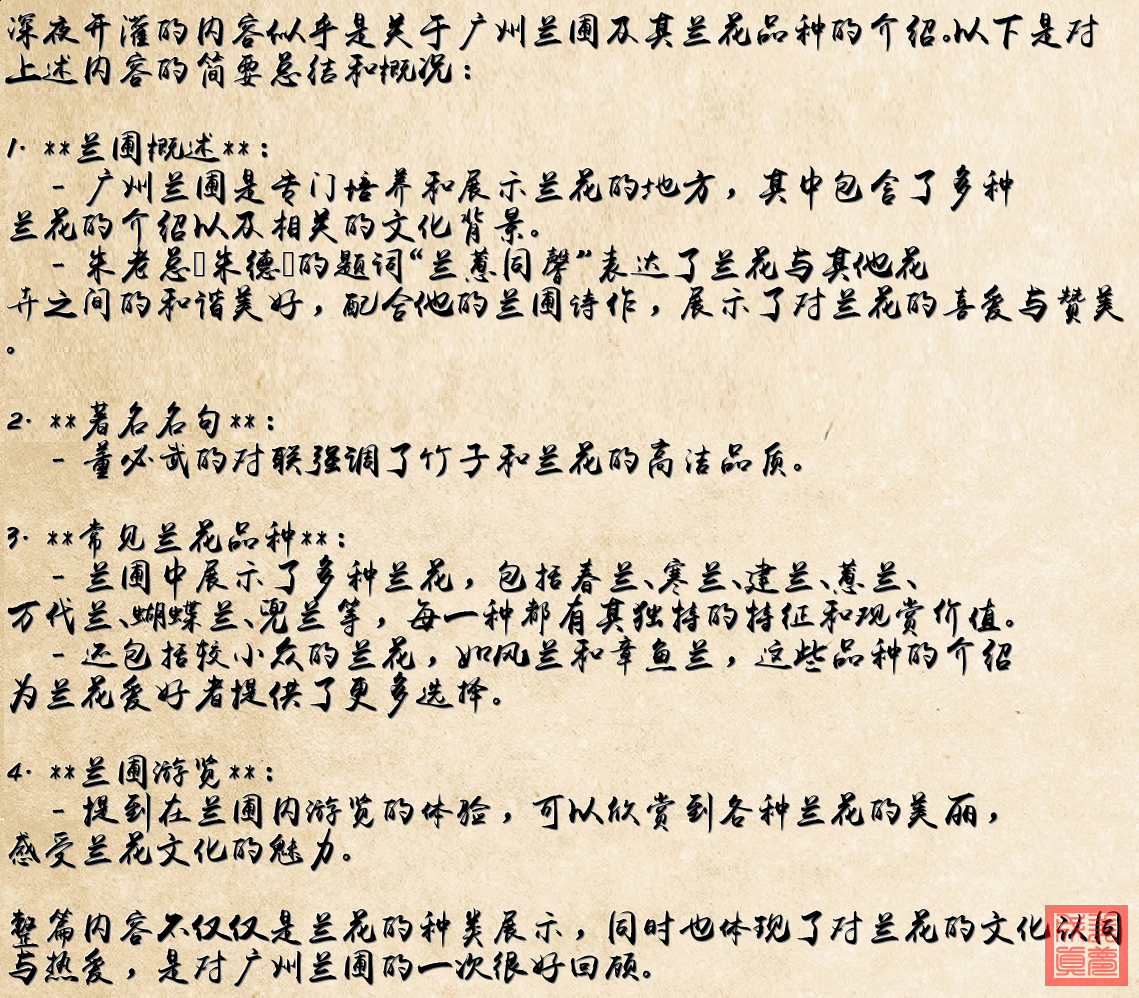 深夜开灌的内容似乎是关于广州兰圃及其兰花品种的介绍。以下是对
上述内容的简要总结和概况：
1. **兰圃概述**：
- 广州兰圃是专门培养和展示兰花的地方，其中包含了多种
兰花的介绍以及相关的文化背景。
- 朱老总▯朱德▯的题词“兰蕙同馨”表达了兰花与其他花
卉之间的和谐美好，配合他的兰圃诗作，展示了对兰花的喜爱与赞美
。
2. **著名名句**：
- 董必武的对联强调了竹子和兰花的高洁品质。
3. **常见兰花品种**：
- 兰圃中展示了多种兰花，包括春兰、寒兰、建兰、蕙兰、
万代兰、蝴蝶兰、兜兰等，每一种都有其独特的特征和观赏价值。
- 还包括较小众的兰花，如风兰和章鱼兰，这些品种的介绍
为兰花爱好者提供了更多选择。
4. **兰圃游览**：
- 提到在兰圃内游览的体验，可以欣赏到各种兰花的美丽，
感受兰花文化的魅力。
整篇内容不仅仅是兰花的种类展示，同时也体现了对兰花的文化认同
与热爱，是对广州兰圃的一次很好回顾。